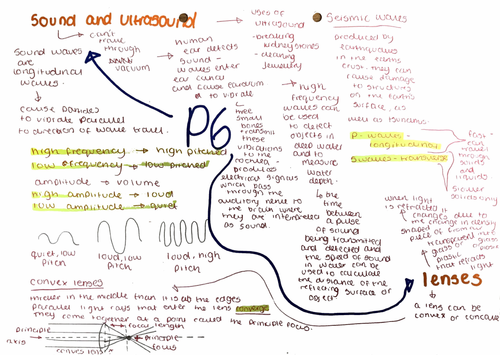 Sound and ultrasound
can't
travel
through
vacuum
sound waves
are
longitudinal
waves.
cause particles
to vibrate parallel
to direction of wave travel.
human
ear detects
sound -
waves enter
ear canal
and cause eardrum
to vibrate
three
small
bones
transmit
these
vibrations
to the
cochlea -
produces
electrical signals
which pass
through the
auditory nerve to
the brain where
they are interpreted
as sound.
uses of
ultrasound
- breaking
kidney stones
- cleaning
jewellery
high
frequency
waves can
be used
to detect
objects in
deep water
and to
measure
water
depth.
the
time
between
a pulse
of sound
being transmitted
and detected and
the speed of sound
in water can be
used to calculate
the distance of the
reflecting surface or
object
Seismic waves
produced by
earthquakes
in the earths
crust. they can
cause damage
to structures
on the earths
surface, as
well as tsunamis.
P-waves -
longitudinal
fast -
can
travel
through
solids
and
liquids
S waves - transverse
slower solids only
P6
high frequency → high pitched
low frequency → low pitched
amplitude → volume
high amplitude → loud
low amplitude → quiet
quiet, low
pitch
loud, low
pitch
loud, high
pitch
when light
is refracted it
changes due to
the change in density
shaped piece of
transparent
glass or
plastic
that refracts
light
lenses
a lens can be
convex or concave
convex lenses
thicker in the middle than it is at the edges
parallel light rays that enter the lens converge
they come together at a point called the principle focus.
principle
axis
focal length
principle
focus
convex lens